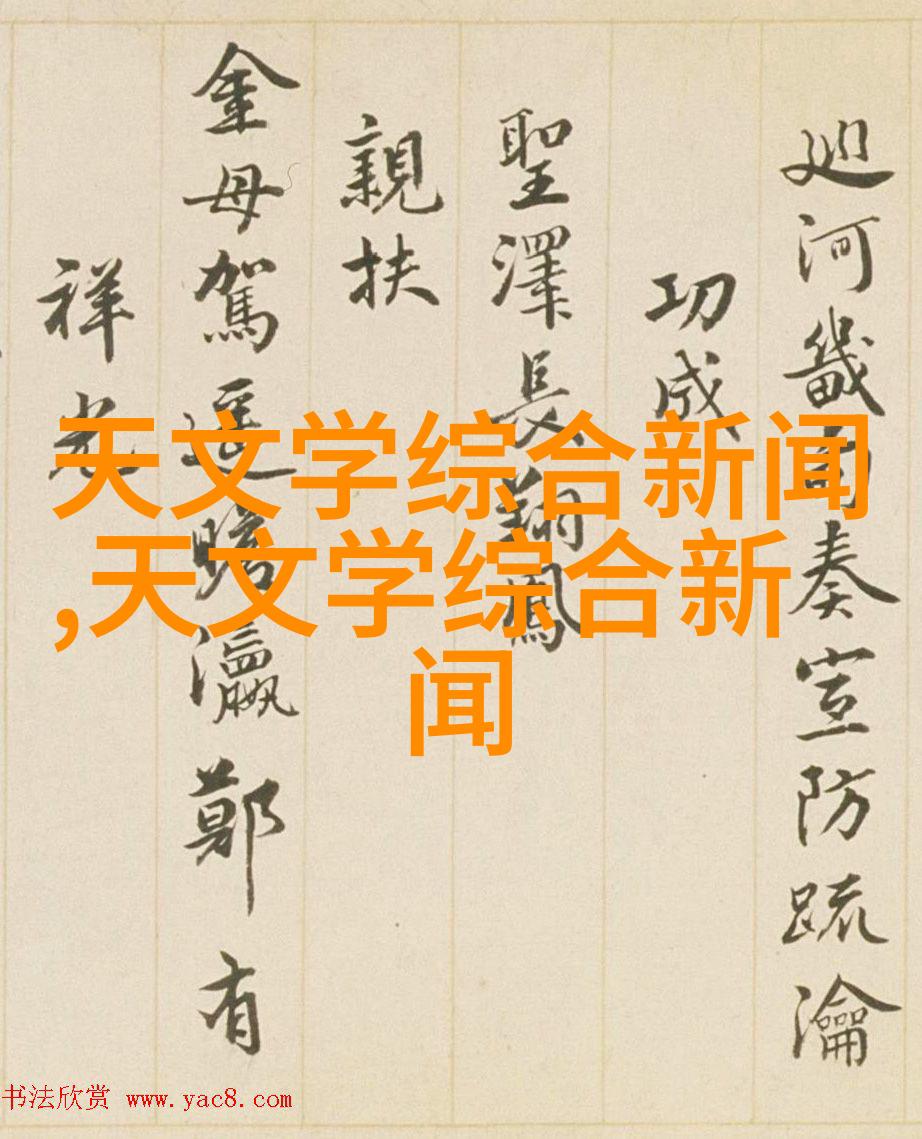 廵河畿司奏宣防疏瀹
功成
聖澤長翔鳳
親扶
金母駕遥瞻瀛鄭有
祥光
天文学综合新闻
,天文学综合新
闻
书法欣赏 www.yac8.com